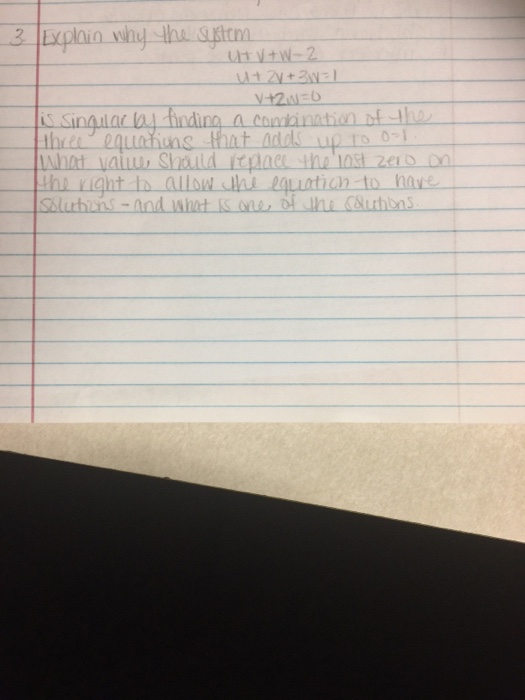 3 Explain why the system
u+v+w=2
u+2v+3w=1
v+2w=0
is singular by finding a combination of the
three equations that adds up to 0=1.
What value should replace the last zero on
the right to allow the equation to have
solutions - and what is one of the solutions.